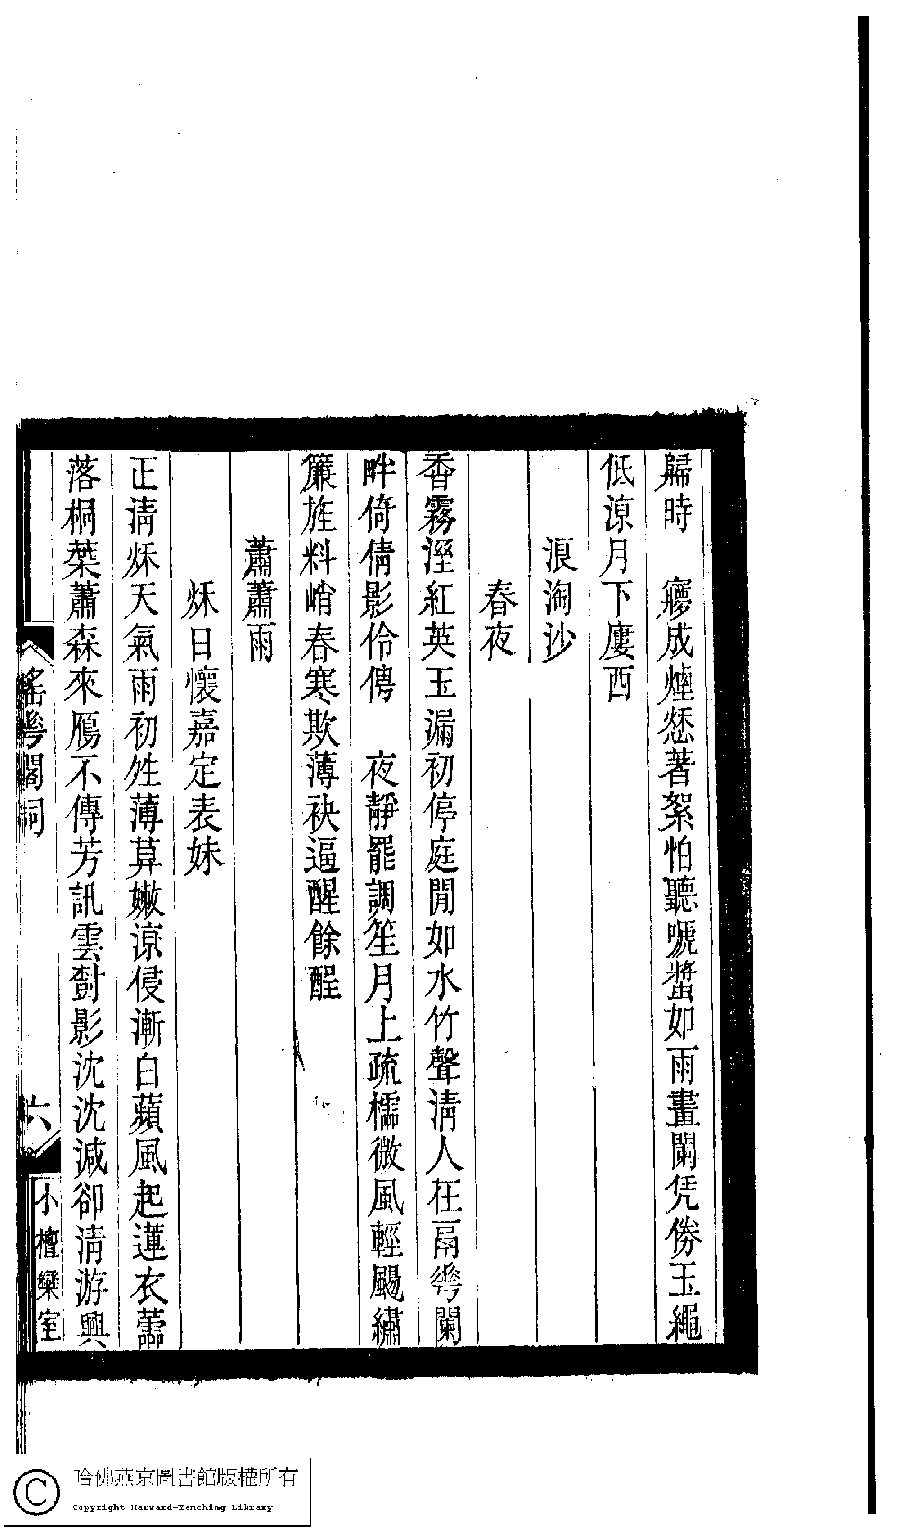 歸時　㝱成煙愁著絮怕聽嗁螿如雨畫闌凭傍玉繩
低涼月下廔西
浪淘沙
春夜
香霧溼紅英玉漏初停庭閒如水竹聲清人在鬲𠌶闌
畔倚倩影伶俜　夜靜罷調笙月上疏櫺微風輕颺繡
簾旌料峭春寒欺薄袂逼醒餘酲
蕭蕭雨
秌日懷嘉定表妹
正清秌天氣雨初姓薄萛嫩涼侵漸白蘋風起蓮衣蘦
落桐葉蕭森來鴈不傳芳訊雲樹影沈沈減卻清游興
瑤𠌶閣詞
六
小檀欒室
哈佛燕京圖書館版權所有
Copyright Harvard-Yenching Library